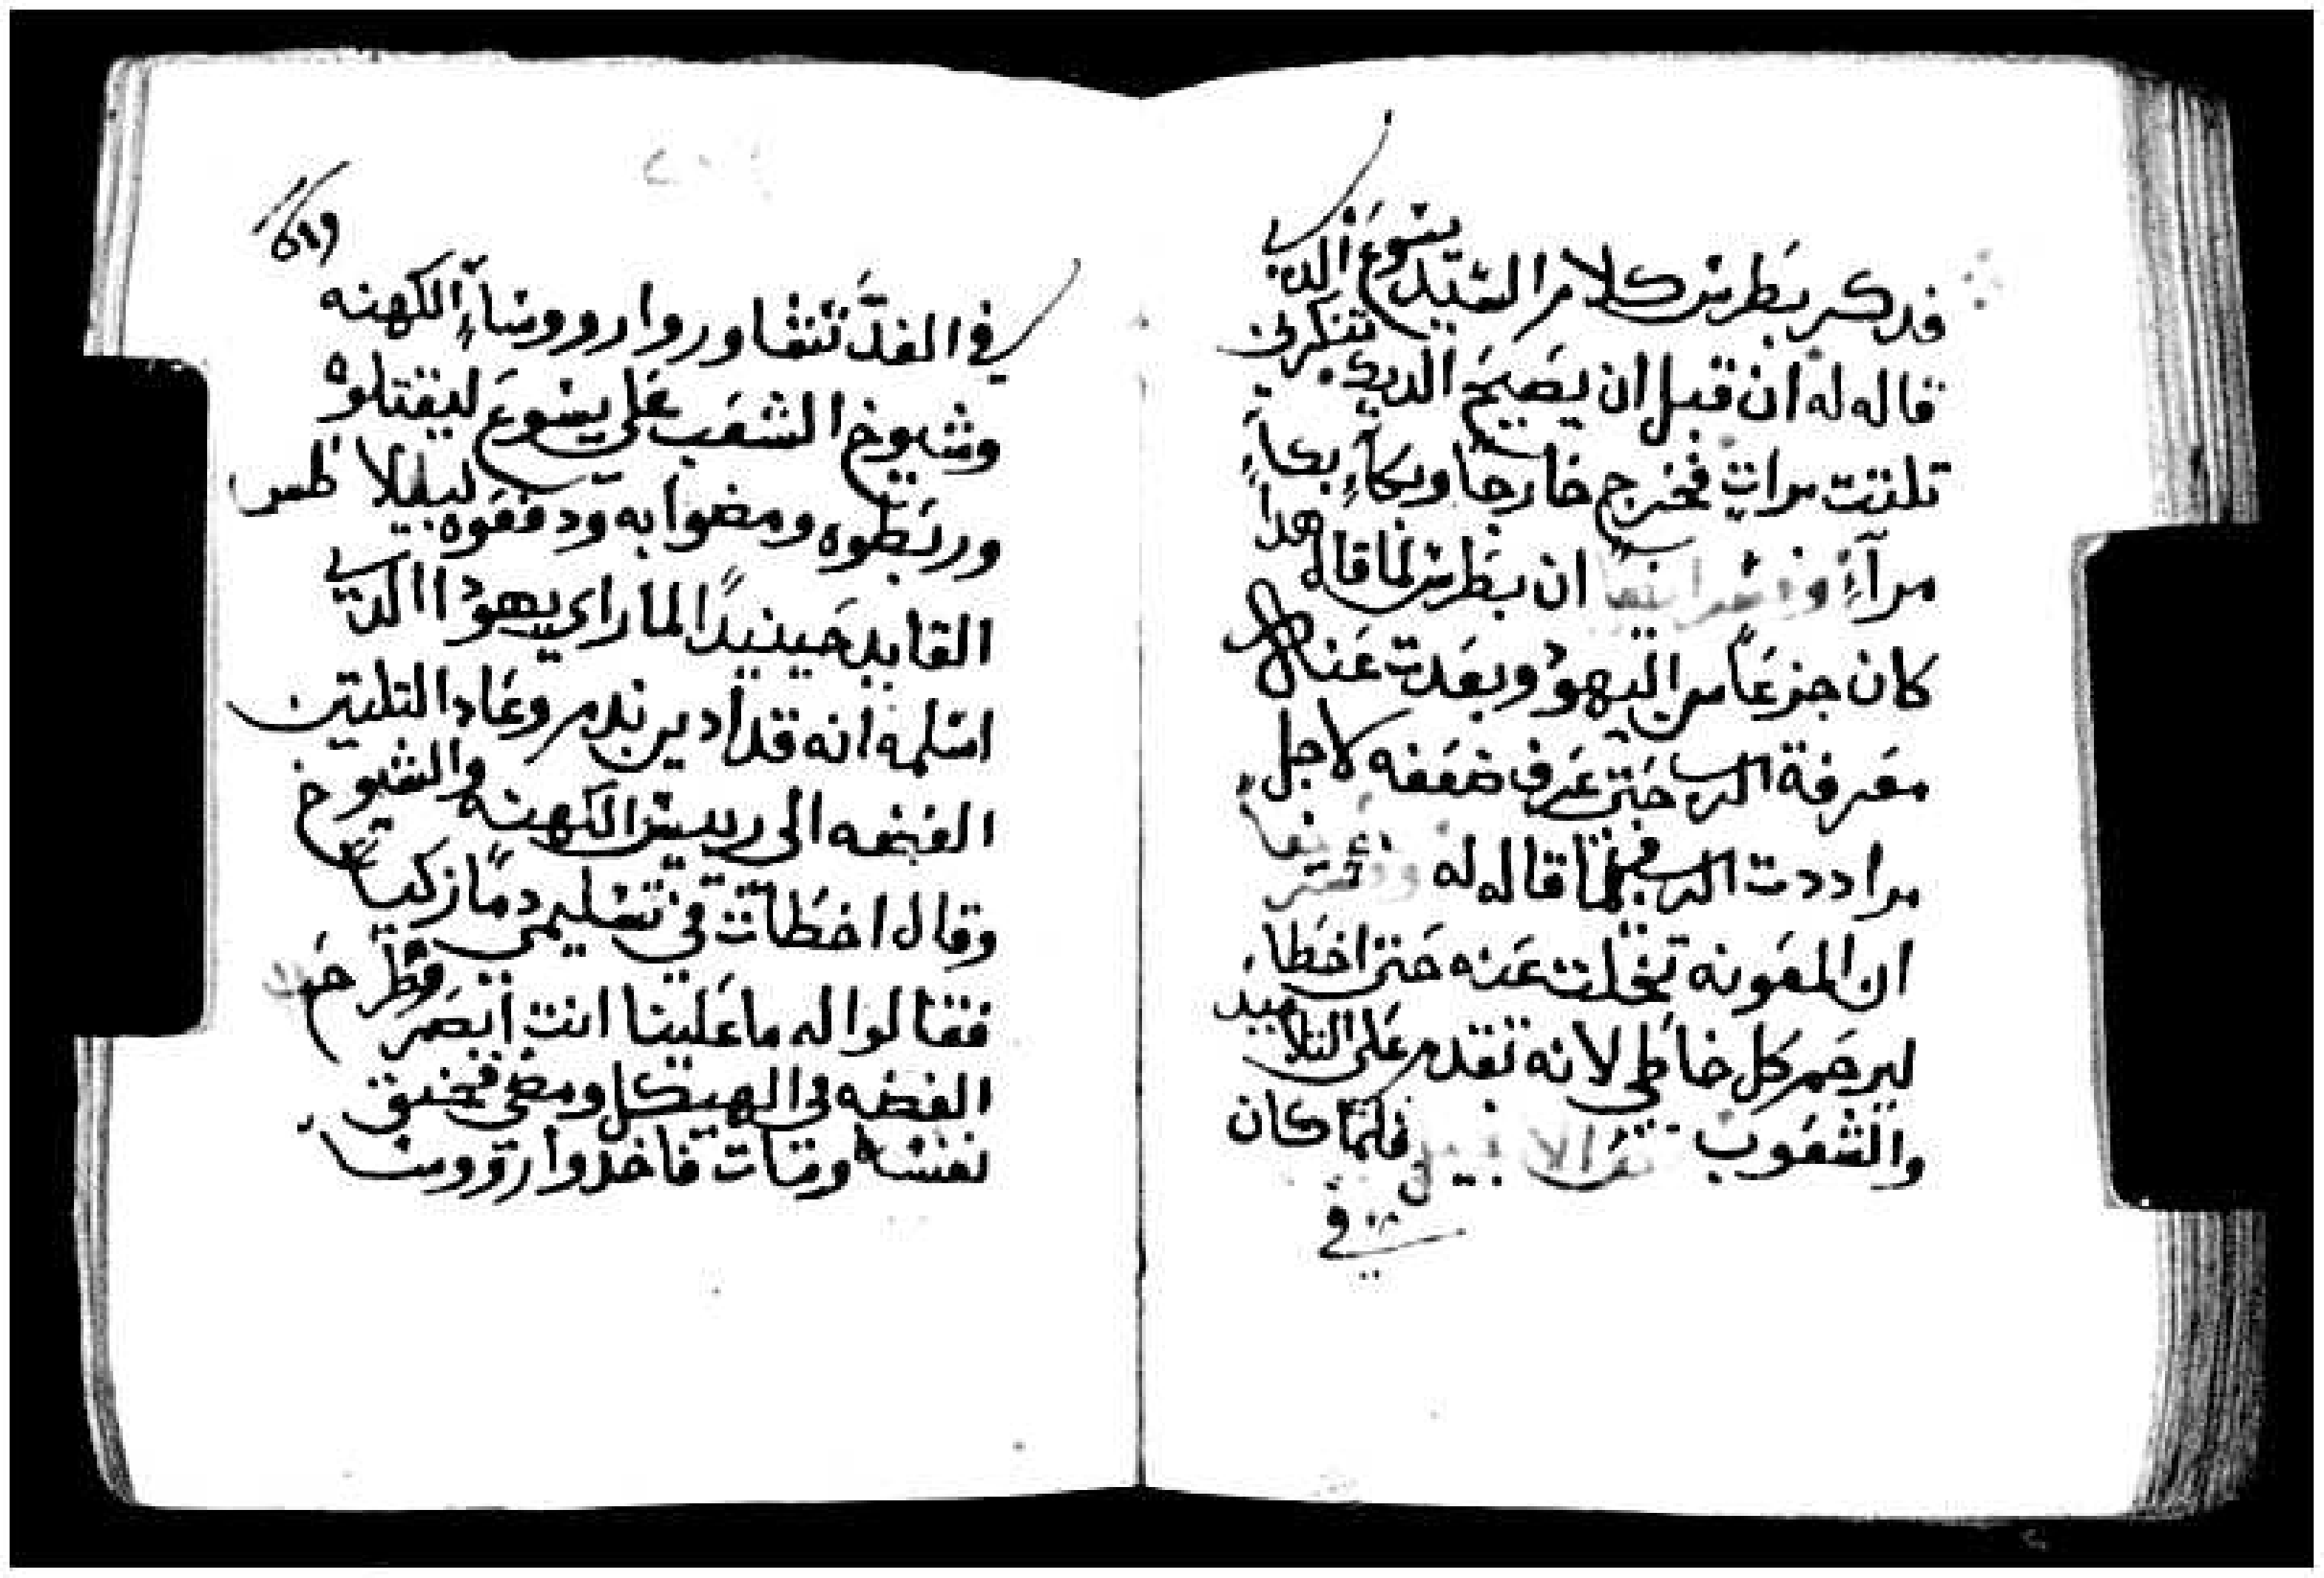 فدكر بطرس كلام السيد يسوع الدي
قاله له ان قبل ان يصيح الديك تنكرني
تلتت مرات فخرج خارجا وبكاء بكاءً
مراءً ان بطرس لما قال هدا
كان جزعاً من اليهود وبعدت عنه
معرفة الرب حتى عرف ضعفه لاجل
مراددت الرب فيما قاله له
ان المعونه تخلت عنه حتى اخطا
ليرحم كل خاطي لانه تقدم على التلاميد
والشعوب فلما كان
في
في الغد تشاوروا رووساء الكهنه
وشيوخ الشعب على يسوع ليقتلوه
وربطوه ومضوا به ودفعوه لبيلاطس
القايد حينيدٍ لما راى يهودا الدي
اسلمه انه قد ادين ندم وعاد التلتين
الفضه الى رييس الكهنه والشيوخ
وقال اخطات في تسليمي دمًا زكيًا
فقالوا له ما علينا انت ابصر فطرح
الفضه في الهيكل ومضى فخنق
نفسه ومات فاخدوا رووسا